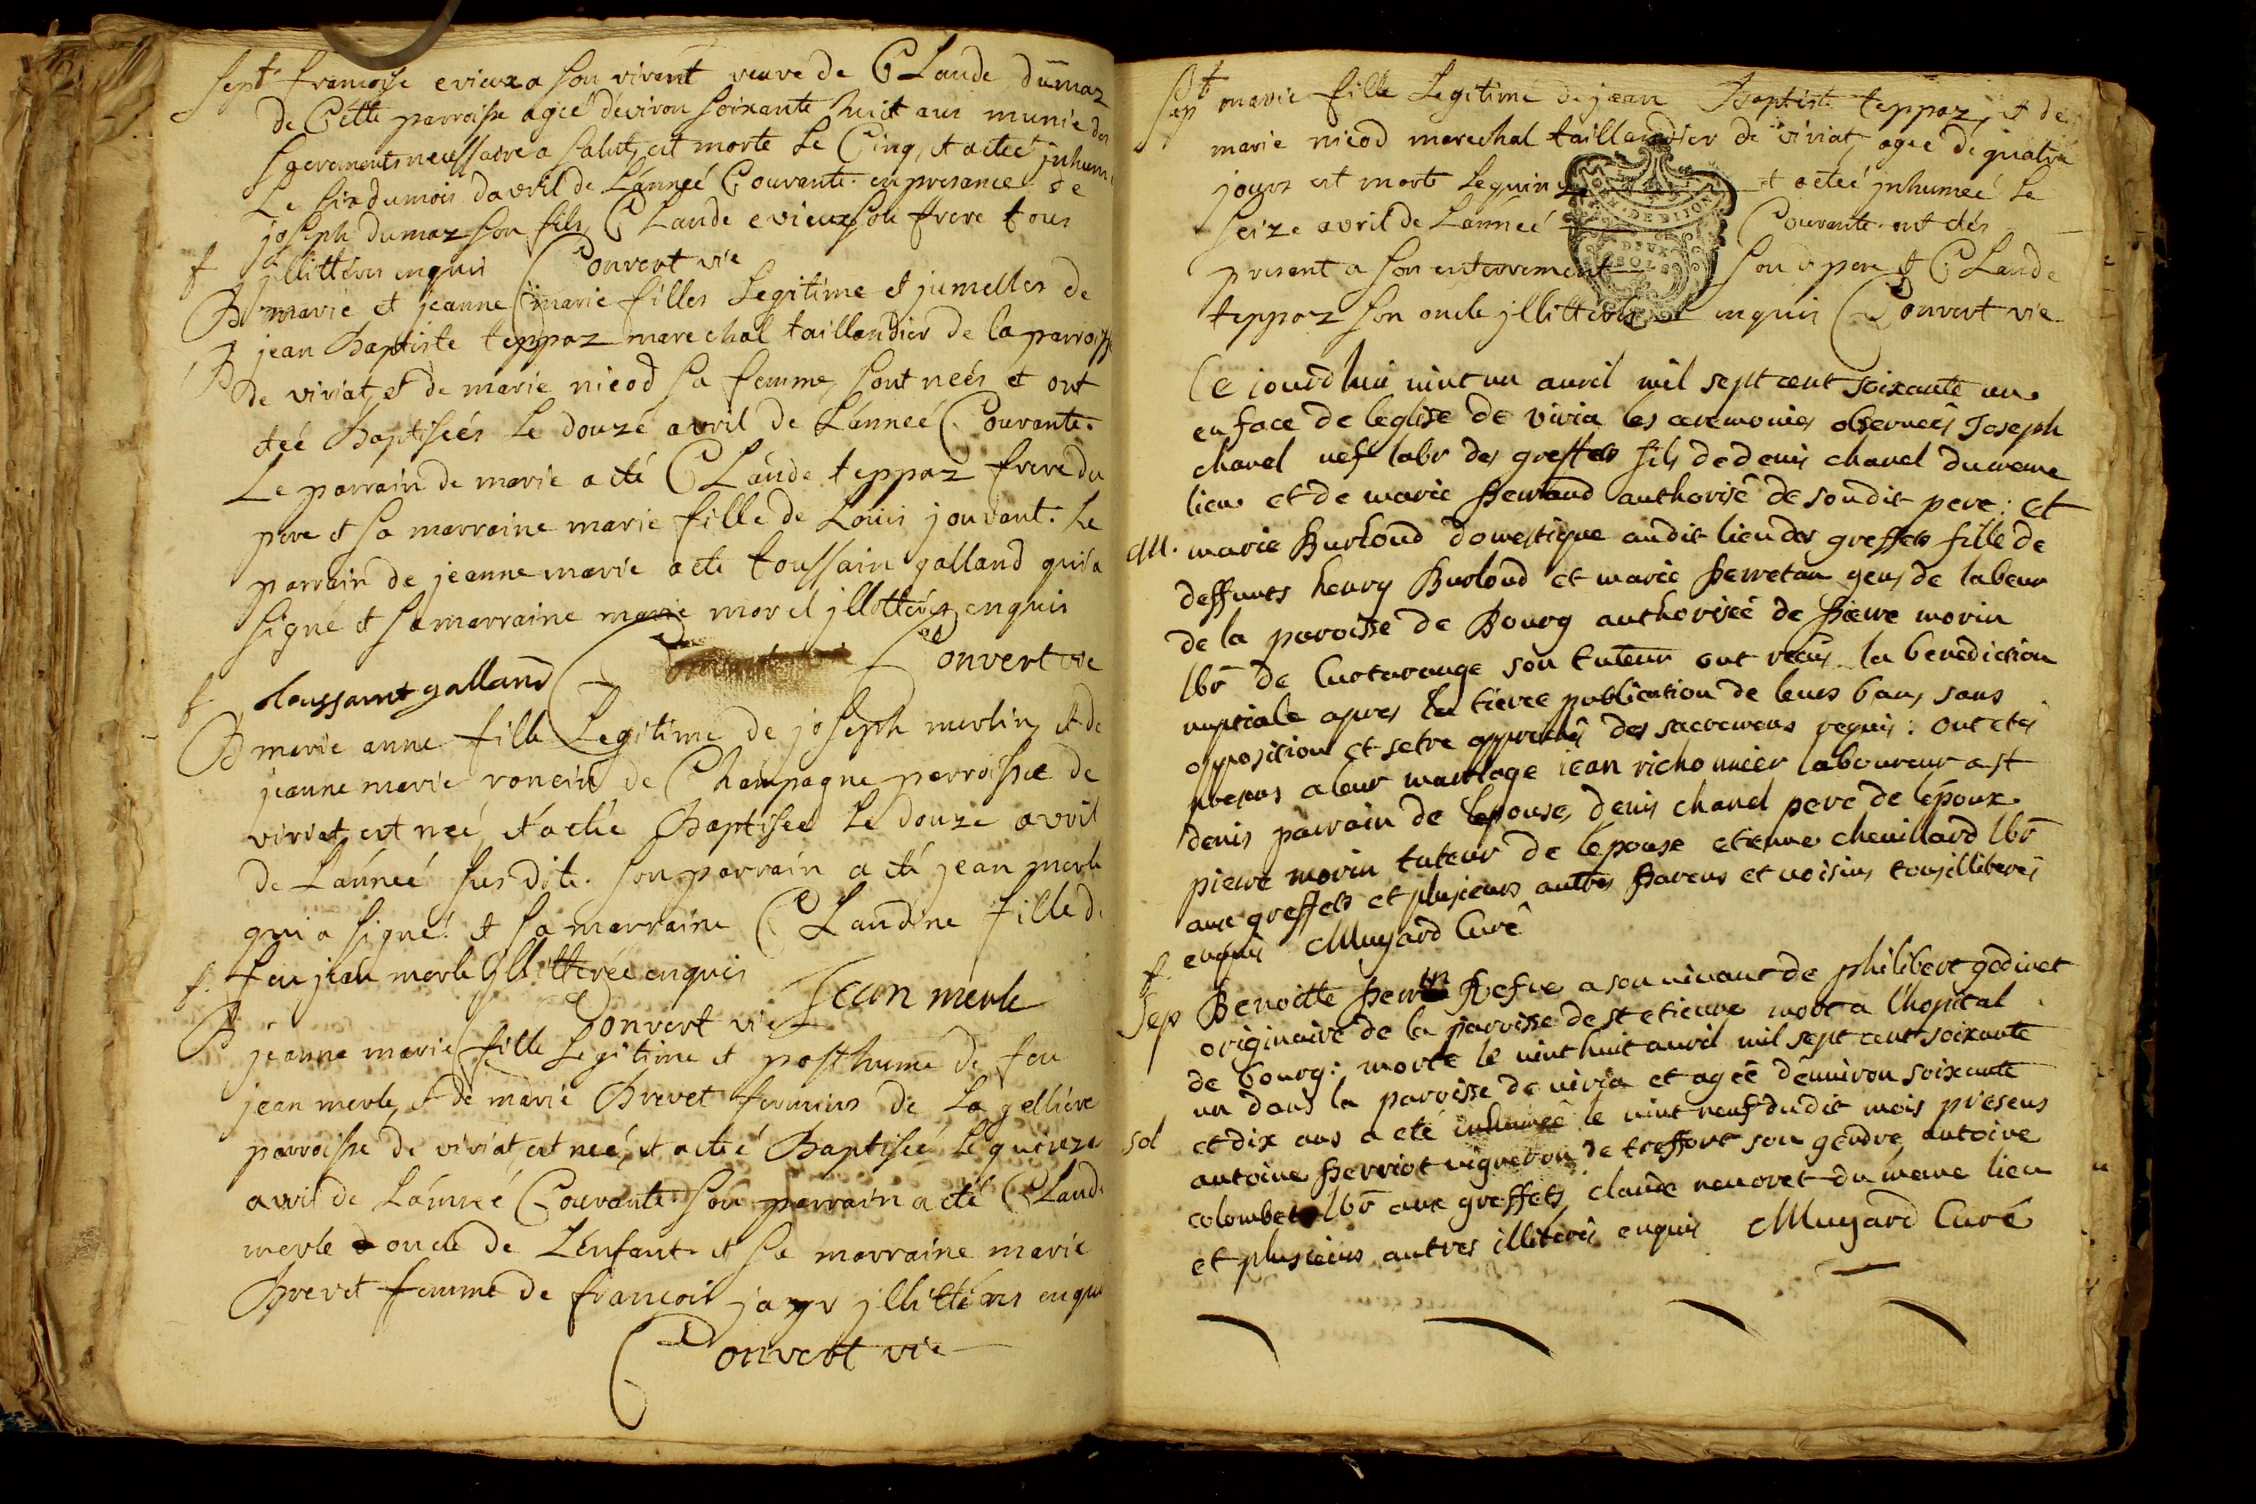 sept francoise evieux a son vivant veuve de CLaude dumaz
de Cette parroisse ageé déviron soixante huit ans munie des
sacrements necessaire a salut, est morte Le Cinq, et a eteé jnhum
Le six du mois davril de Lánneé Courante en presance de
joseph dumaz son fils, CLaude evieux son frere tous
f jllittérés enquis Convert vic
B marie et jeanne marie filles Legitime et jumelles de
B jean Baptiste teppaz marechal taillandier de la parroisse
de viriat, et de marie nicod sa femme, sont neés et ont
eteé Baptiseés Le douze avril de Lánneé Courante.
Le parrain de marie a eté CLaude teppaz frere du
pere et sa marraine marie fille de Louis jouvant. Le
parrain de jeanne marie a ete toussain galland qui a
signé et sa marraine marie morel jllittérés enquis
f toussaint galland Convert vic
B marie anne fille Legitime de joseph merlin, et de
jeanne marie roncin de Champagne parroisse de
viriat, est neé, et a eteé Baptiseé Le douze avril
de Lánneé susdite. son parrain a eté jean merle
qui a signé. et sa marraine CLaudine fille de
f. feu jean merle jllitteréé enquis Jean merle
Convert vic
B jeanne marie fille Legitime et posthume de feu
jean merle, et de marie Brevet fermiers de La gelliere
parroisse de viriat, est neé, et a eteé Baptiseé Le quinze
avril de Lánneé Courante son parrain a eté CLaude
merle oncle de Lénfant. et sa marraine marie
Brevet femme de francois jayr jllittérés enquis
Convert vic
sept marie fille Legitime de jean Baptiste teppaz, et de
marie nicod marechal taillandier de viriat, ageé de quatre
jours est morte Le quinze et a eteé jnhumeé Le
seize avril de Lánneé Courante. ont étés
present a son enterrement son pere et CLaude
teppaz son oncle jllittérés enquis Convert vic
Ce jourdhui vint un avril mil sept cent soixante un
en face de leglise de viria les ceremonies observeés Joseph
chanel nef labr des greffets fils de denis chanel du meme
lieu et de marie perraud authorisé de son dit pere; et
M. marie Burloud domestique au dit lieu des greffets fille de
deffunts henry Burloud et marie perretan gens de labeur
de la paroisse de Bourg authoriseé de pierre morin
lbr de Curtarange son tuteur ont reçûs la benediction
nuptiale apres la tierce publication de leurs bans sans
opposition et setre approchés des sacremens requis: ont etés
presens a leur mariage iean richonnier laboureur a st
denis parrain de lepouse, denis chanel pere de lépoux
pierre morin tuteur de lépouse etienne chevillard lbr
aux greffets et plusieurs autres parens et voisins tous illiterés
enquis Mugard Curé
f.
Sep Benoitte perrin vefve a son vivant de philibert godinet
originaire de la paroisse de st etienne mort a lhopital
de bourg: morte le vint huit avril mil sept cent soixante
un dans la paroisse de viria et ageé dénviron soixante
sol et dix ans a eté inhumeé le vint neuf du dit mois presens
antoine perriot vigneron de treffort son gendre, antoine
colombet lbr aux greffets, claude nevoret du meme lieu
et plusieurs autres illiterés enquis Mugard Curé